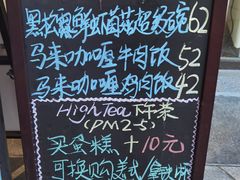 黑松露鲜虾菌菇超级碗62
马来咖喱牛肉饭52
马来咖喱鸡肉饭42
High Tea 下午茶
(PM2-5)
买蛋糕+10元
可换购美式/拿铁